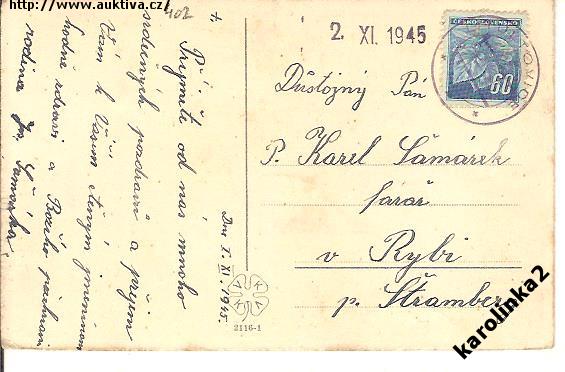 http://www.auktiva.cz/
402
+
Přijměte od nás mnoho
srdečných pozdravů a přejem
Vám k Vašim ctěným jmeninám
hodně zdraví a Božího požehnání
rodina
Dne 1. XI. 1945.
2116-1
2. XI. 1945
ČESKOSLOVENSKO
60
Důstojný Pán
P. Karel Šámárek
farář
v Rybí
p. Štramberk
karolinka2